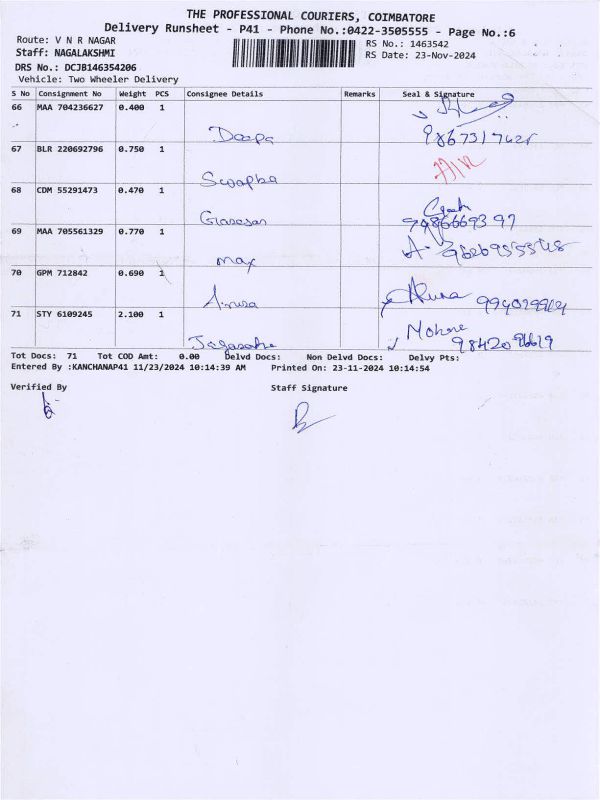 THE PROFESSIONAL COURIERS, COIMBATORE
Delivery Runsheet - P41 - Phone No.:0422-3505555 - Page No.:6
Route: V N R NAGAR
RS No.: 1463542
Staff: NAGALAKSHMI
RS Date: 23-Nov-2024
DRS No.: DCJB146354206
Vehicle: Two Wheeler Delivery
S No Consignment No Weight PCS Consignee Details Remarks Seal & Signature
66 MAA 704236627 0.400 1
Deepa
67 BLR 220692796 0.750 1
Swapba
68 CDM 55291473 0.470 1
69 MAA 705561329 0.770 1
max
70 GPM 712842 0.690 1
71 STY 6109245 2.100 1
Tot Docs: 71 Tot COD Amt: 0.00 Delvd Docs: Non Delvd Docs: Delvy Pts:
Entered By :KANCHANAP41 11/23/2024 10:14:39 AM Printed On: 23-11-2024 10:14:54
Verified By Staff Signature